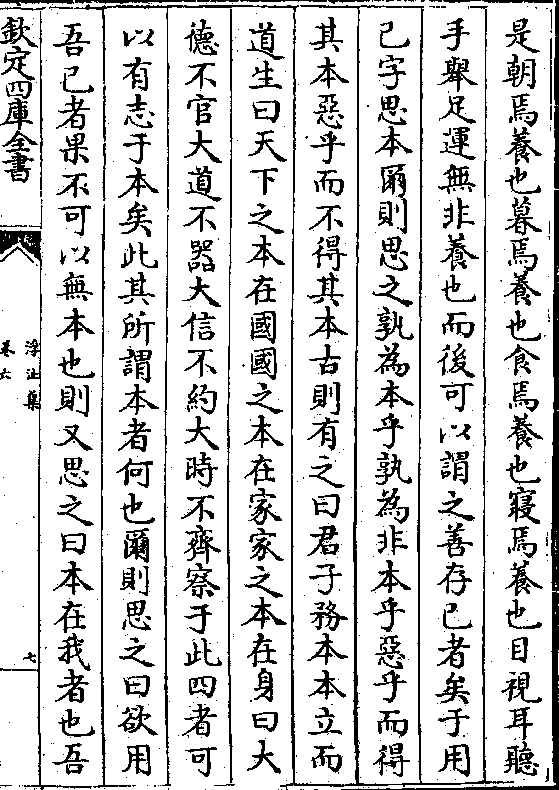 是朝焉養也暮焉養也食焉養也寢焉養也目視耳聽
手舉足運無非養也而後可以謂之善存已者矣于用
已字思本爾則思之孰為本乎孰為非本乎惡乎而得
其本惡乎而不得其本古則有之曰君子務本本立而
道生曰天下之本在國國之本在家家之本在身曰大
德不官大道不器大信不約大時不齊察于此四者可
以有志于本矣此其所謂本者何也爾則思之曰欲用
吾已者果不可以無本也則又思之曰本在我者也吾
欽定四庫全書
浮沚集
卷六
七